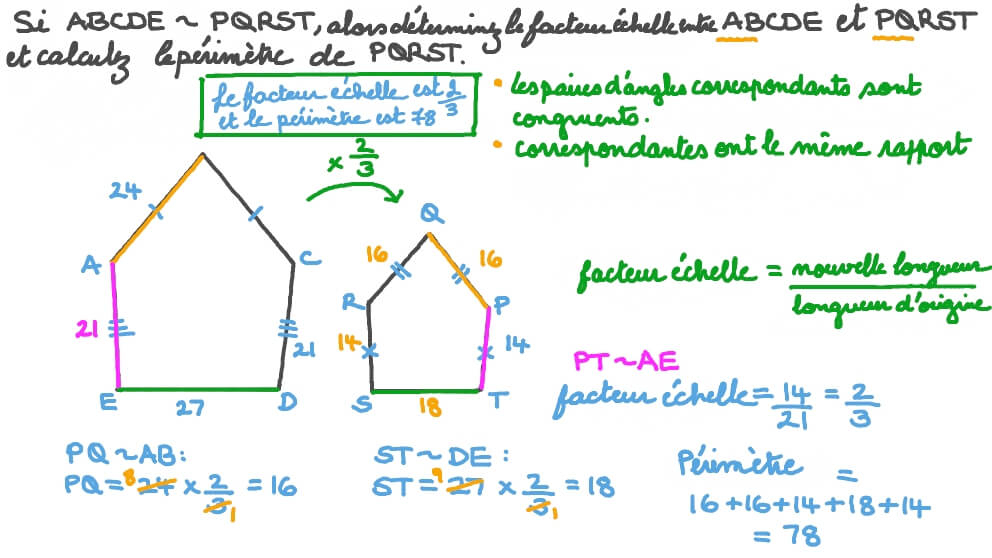 Si ABCDE ~ PQRST, alors déterminez le facteur échelle entre ABCDE et PQRST
et calculez le périmètre de PQRST.
Le facteur échelle est 2/3
et le périmètre est 78
• les paires d'angles correspondants sont
congruents.
• correspondantes ont le même rapport
× 2/3
24
A
C
21
21
E
27
D
Q
16
16
R
P
14
14
S
18
T
facteur échelle = nouvelle longueur / longueur d'origine
PT~AE
facteur échelle = 14/21 = 2/3
PQ ~ AB:
PQ = 24 8 × 2/3 1 = 16
ST ~ DE :
ST = 27 9 × 2/3 1 = 18
Périmètre =
16+16+14+18+14
= 78